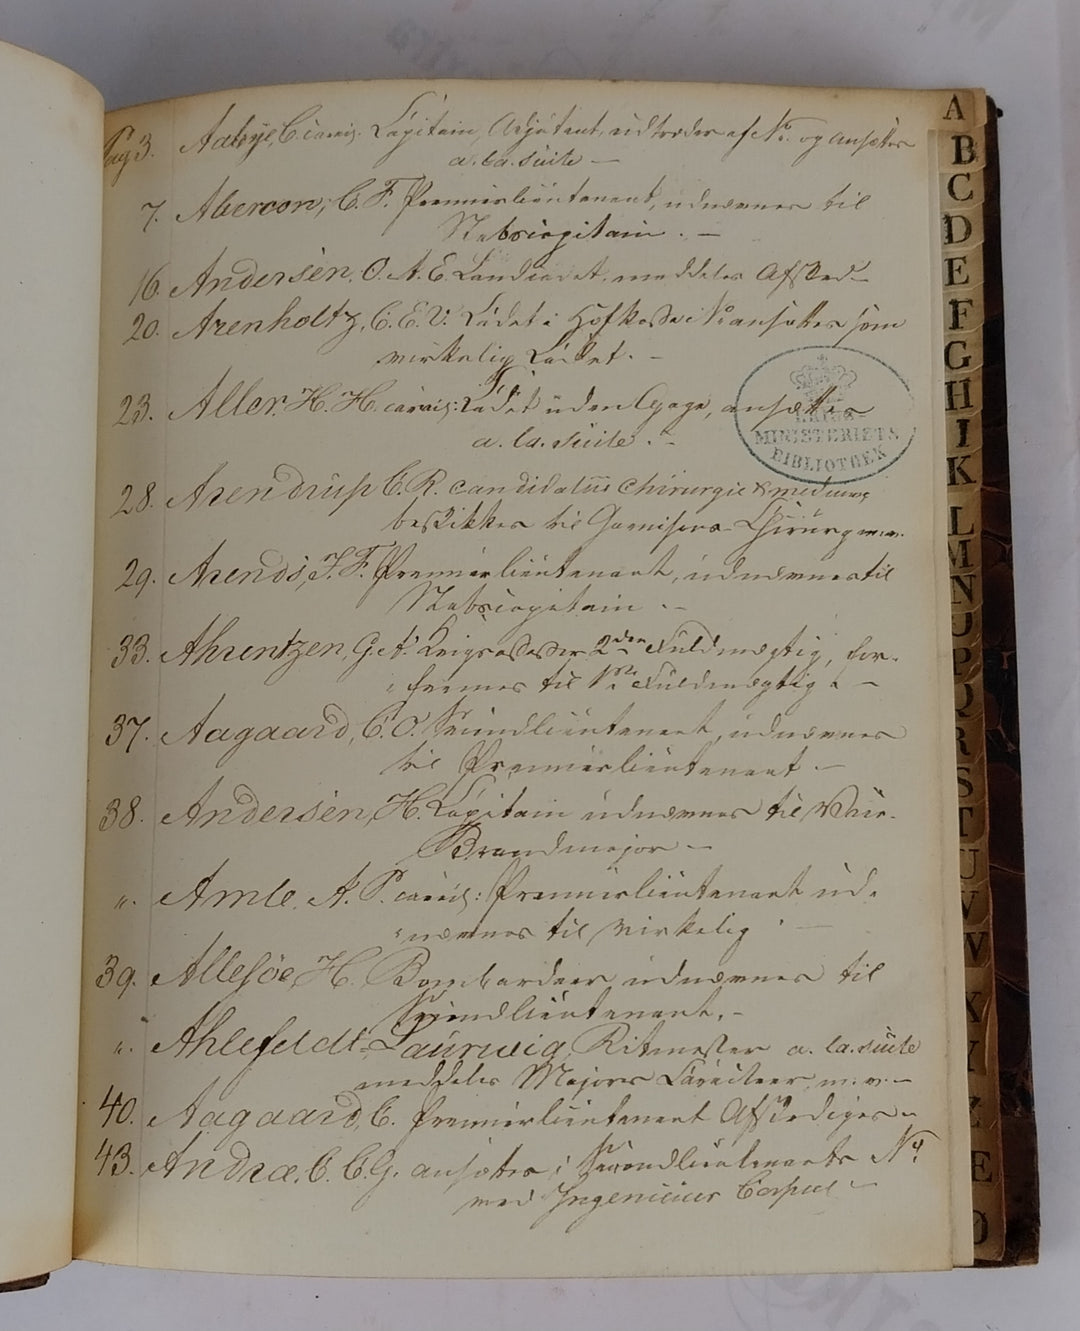 Pag 3. Aabye, C caract. Capitain, Adjutant, udtræder af No. og ansættes
a. la. suite —
7. Abercron, C. F. Premierlieutenant, udnævnes til
Stabscapitain. —
16. Andersen, O. A. E. Landcadet, meddeles Afsked —
20. Arenholtz, C. E. V. Cadet i No ansættes som
virkelig Cadet. —
23. Aller, H. H. caract: Cadet uden Gage, ansættes
a. la. suite. —
28. Arendrup C. R. candidatus chirurgiæ
beskikkes til Garnisons-Chirurg m.v.
29. Arends, J. F. Premierlieutenant, udnævnes til
Stabscapitain. —
33. Ahrentzen, G. A. Krigsassessor 2den Fuldmægtig, for-
fremmes til 1ste Fuldmægtig. —
37. Aagaard, C. O. Secondlieutenant, udnævnes
til Premierlieutenant. —
38. Andersen, H. Capitain udnævnes til Vice-
Brandmajor —
". Amle, A. P. caract: Premierlieutenant ud-
nævnes til virkelig —
39. Allesøe, H. Bombardeer, udnævnes til
Secondlieutenant. —
". Ahlefeldt-Laurwig, Ritmester a. la. suite
meddeles Majors Caracteer, m. v. —
40. Aagaard, C. Premierlieutenant Afskediges —
43. Andræ, C. C. G. ansættes i Secondlieutenants No.
ved Ingenieur Corpset —
KRIGS
MINISTERIETS
BIBLIOTHEK
A
B
C
D
E
F
G
H
I
K
L
M
N
O
P
Q
R
S
T
U
V
W
X
Y
Z
Æ
Ø